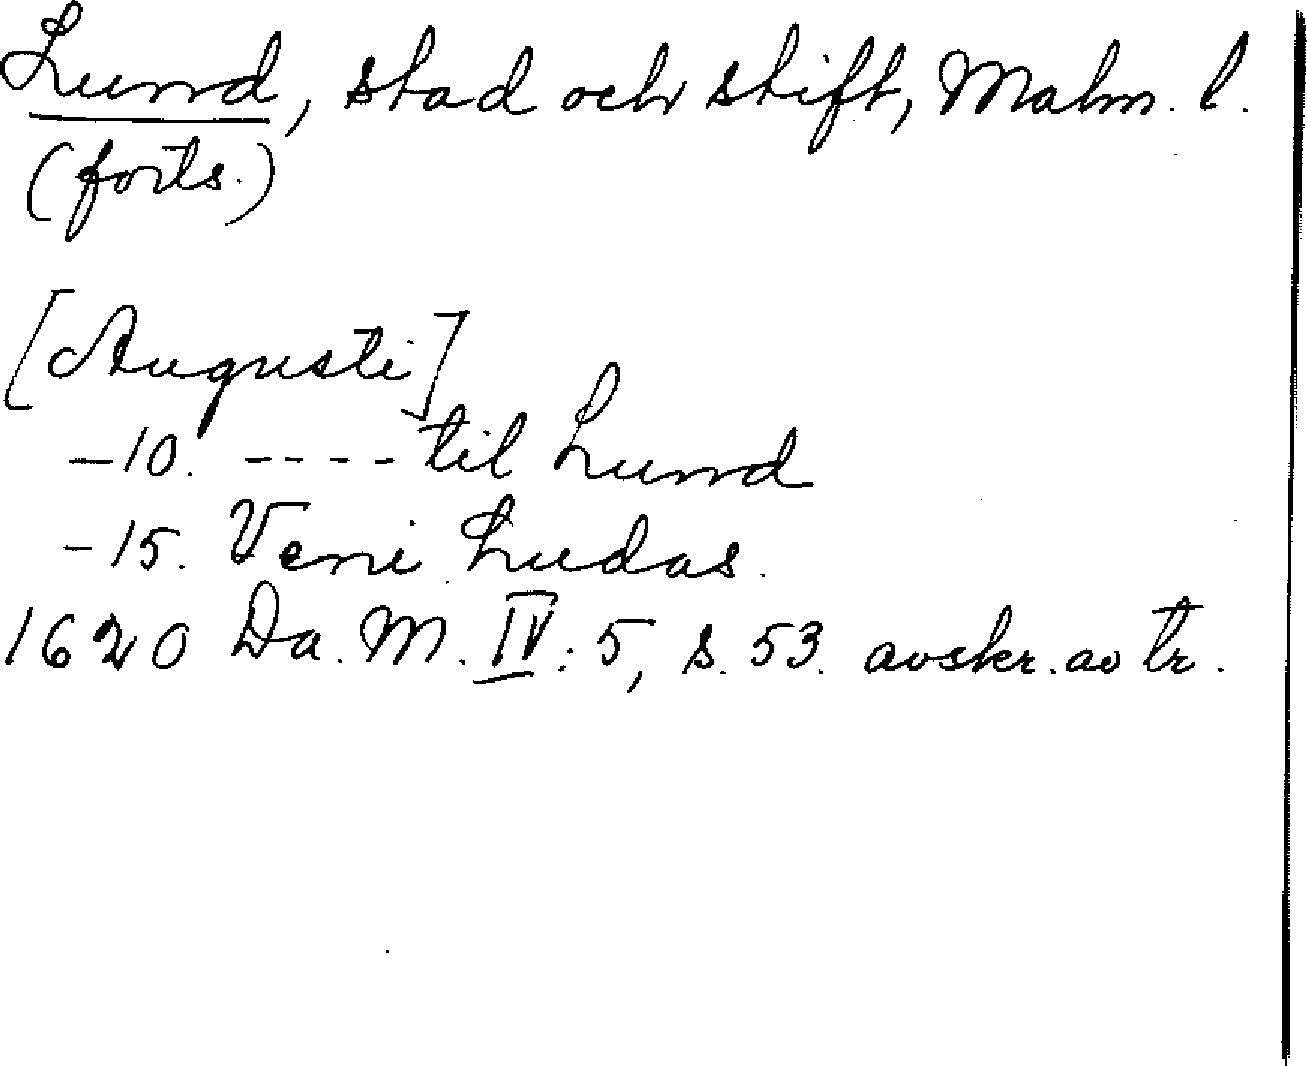 Lund, stad och stift, Malm. l.
(forts.)
[Augusti]
-10. ---- til Lund
-15. Veni Ludas.
1620 Da. M. IV: 5, s. 53. avskr. av tr.